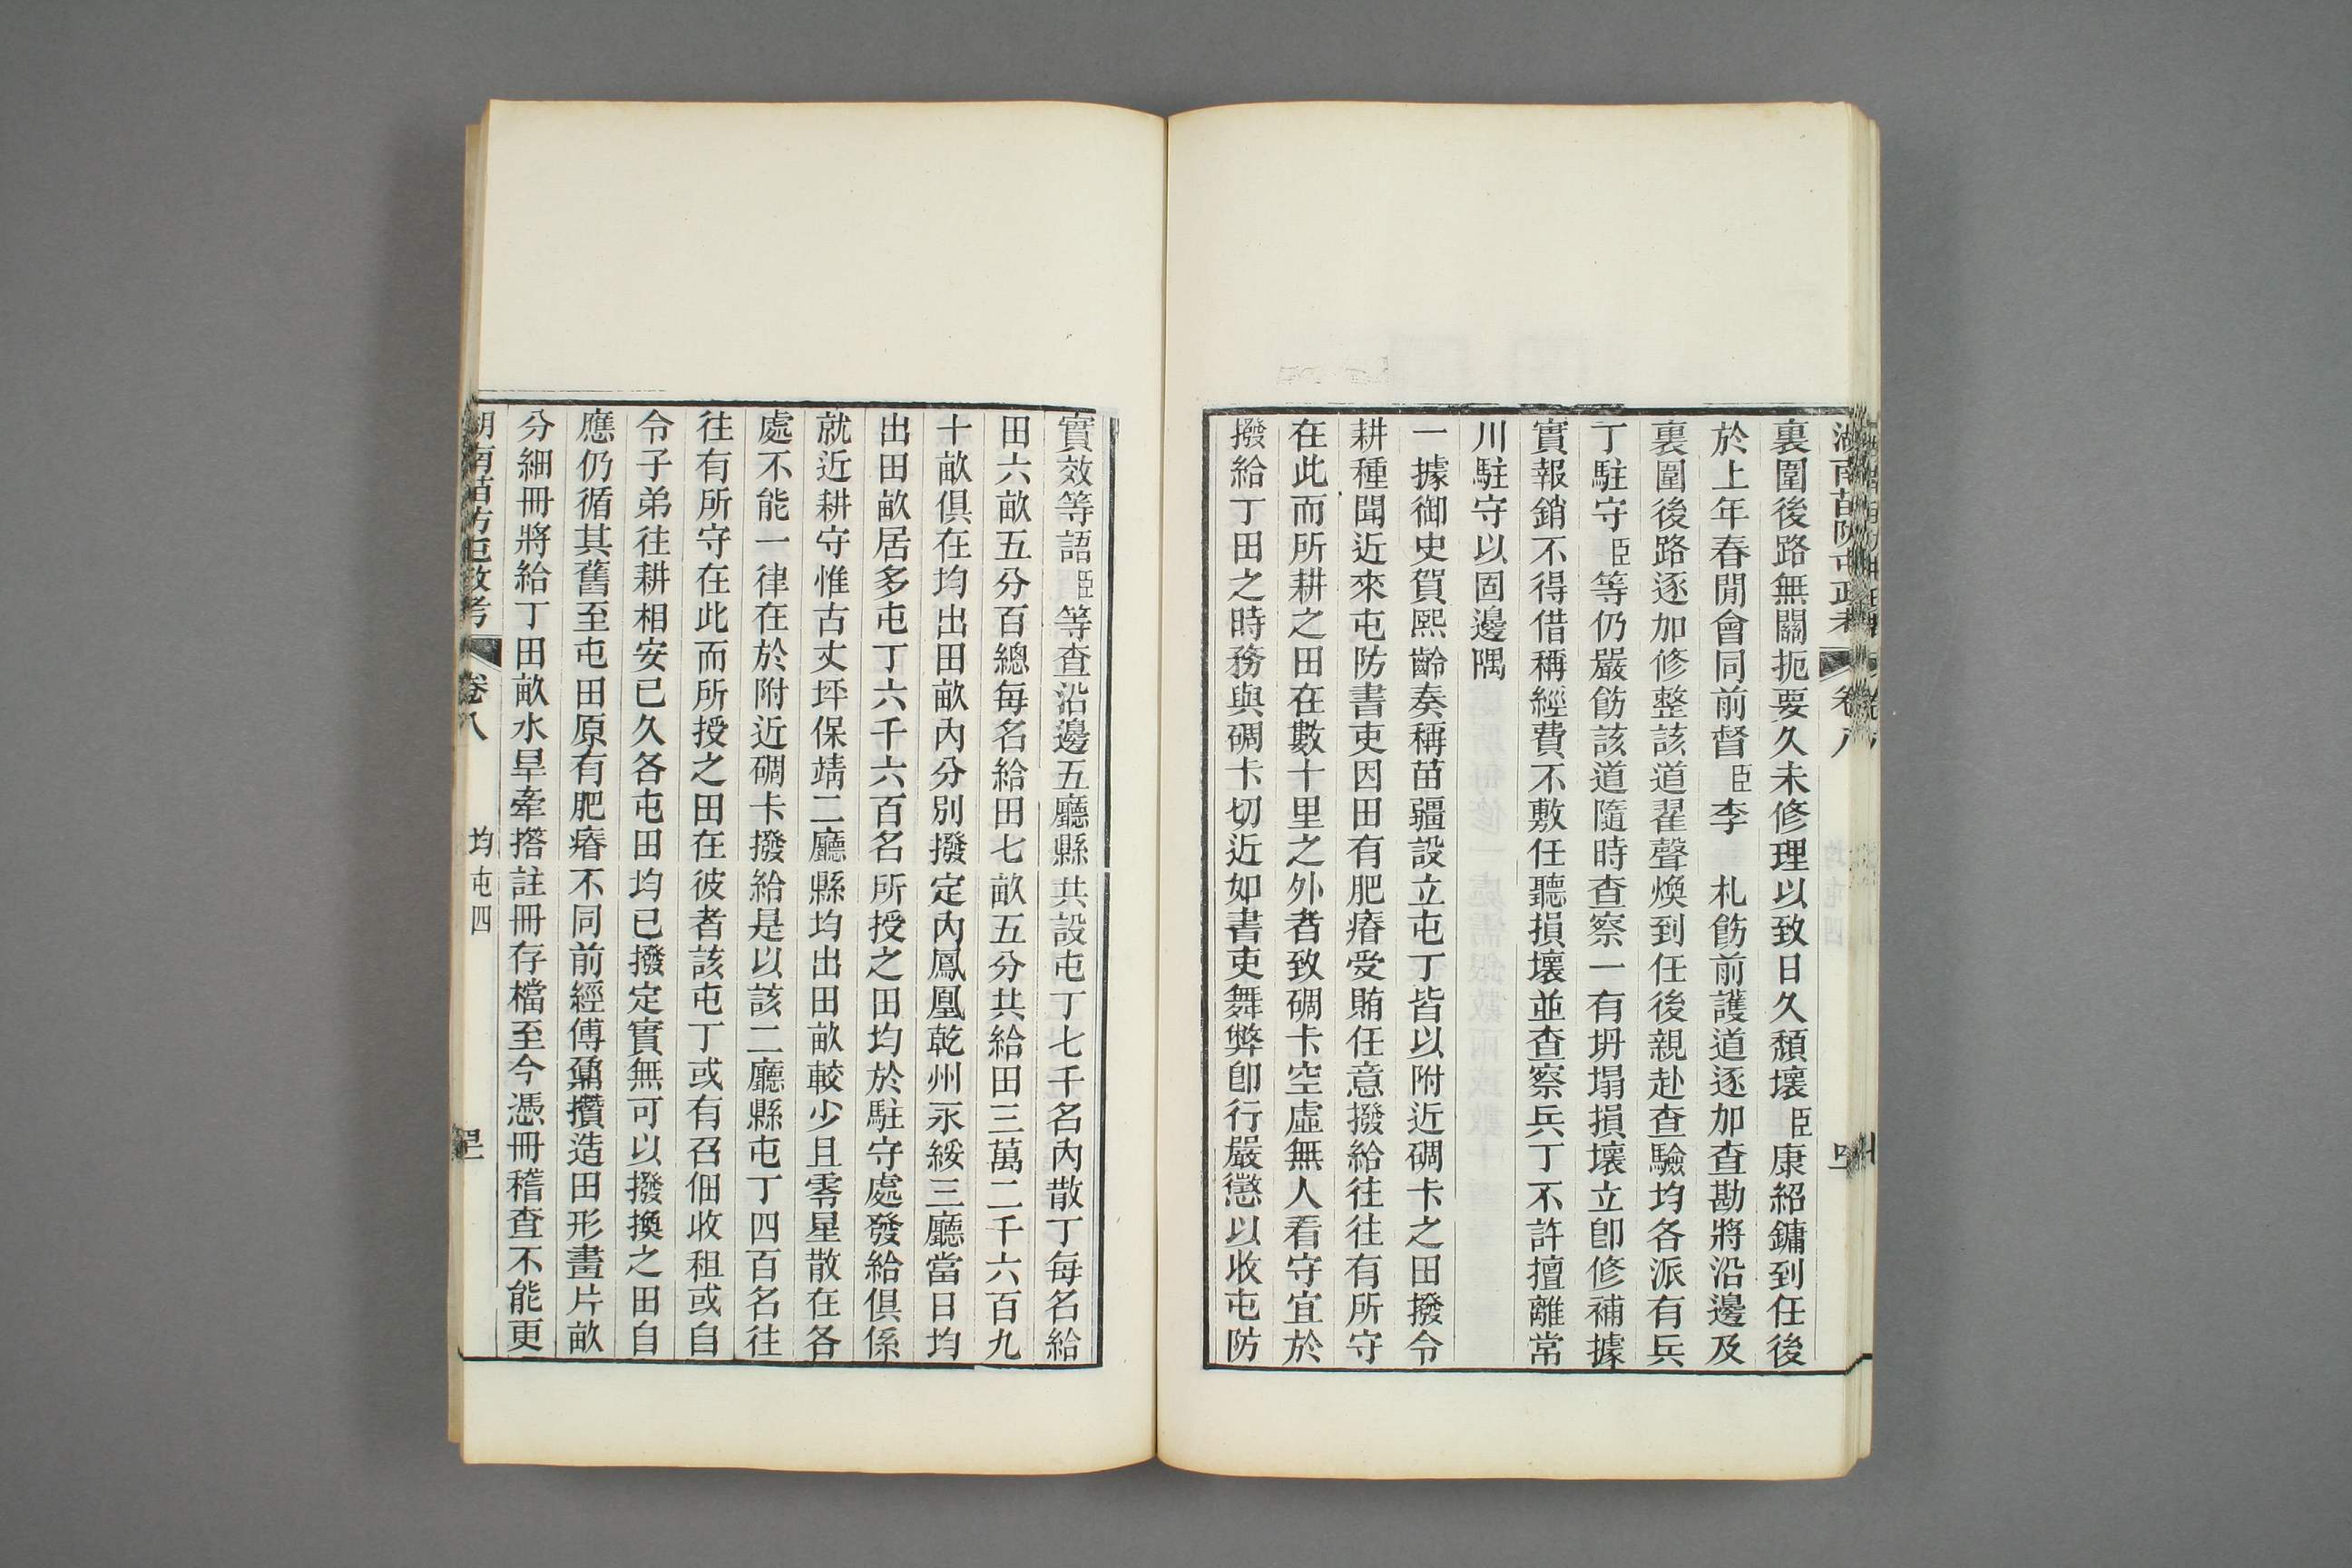 湖南苗防屯政考 卷八
裏圍後路無關扼要久未修理以致日久頹壞臣康紹鏞到任後
於上年春閒會同前督臣李 札飭前護道逐加查勘將沿邊及
裏圍後路逐加修整該道翟聲煥到任後親赴查驗均各派有兵
丁駐守臣等仍嚴飭該道隨時查察一有坍塌損壞立卽修補據
實報銷不得借稱經費不敷任聽損壞並查察兵丁不許擅離常
川駐守以固邊隅
一據御史賀熙齡奏稱苗疆設立屯丁皆以附近碉卡之田撥令
耕種聞近來屯防書吏因田有肥瘠受賄任意撥給往往有所守
在此而所耕之田在數十里之外者致碉卡空虛無人看守宜於
撥給丁田之時務與碉卡切近如書吏舞弊卽行嚴懲以收屯防
實效等語臣等查沿邊五廳縣共設屯丁七千名內散丁每名給
田六畝五分百總每名給田七畝五分共給田三萬二千六百九
十畝俱在均出田畝內分別撥定內鳳凰乾州永綏三廳當日均
出田畝居多屯丁六千六百名所授之田均於駐守處發給俱係
就近耕守惟古丈坪保靖二廳縣均出田畝較少且零星散在各
處不能一律在於附近碉卡撥給是以該二廳縣屯丁四百名往
往有所守在此而所授之田在彼者該屯丁或有召佃收租或自
令子弟往耕相安已久各屯田均已撥定實無可以撥換之田自
應仍循其舊至屯田原有肥瘠不同前經傅鼐攢造田形畫片畝
分細冊將給丁田畝水旱牽撘註冊存檔至今憑冊稽查不能更
湖南苗防屯政考 卷八 均屯四